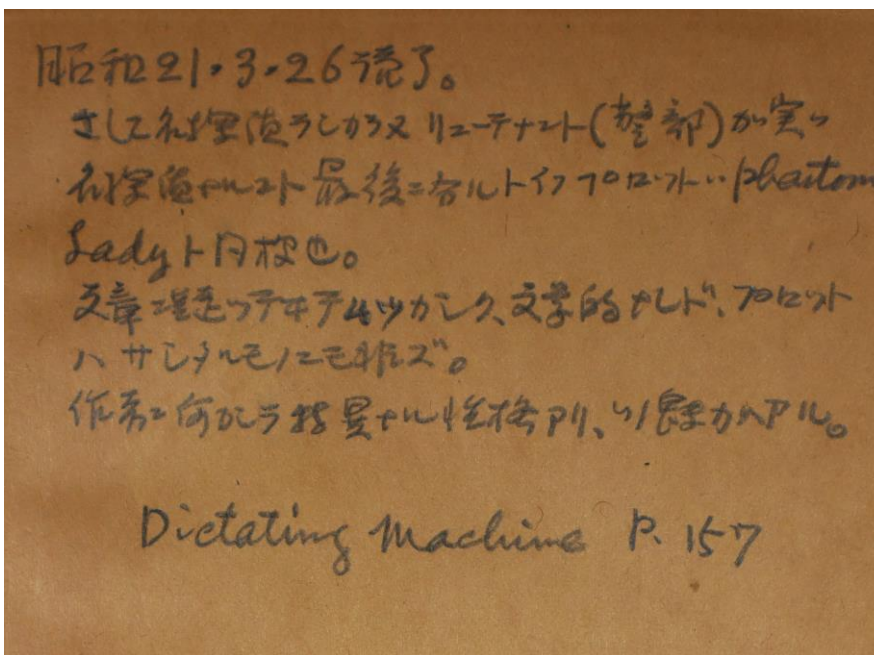 昭和21.3.26読了。
さして名探偵ラシカラヌ リューテナント(警部)が実ハ
名探偵ナルコト最後ニ分ルトイフプロットハPhantom
Ladyト同様也。
文章ハ凝ッテヰテムツカシク、文学的ナレド、プロット
ハサシタルモノニモ非ズ。
作者ニ何カシラ特異ナル性格アリ、ソノ良さガアル。
Dictating Machine P. 157